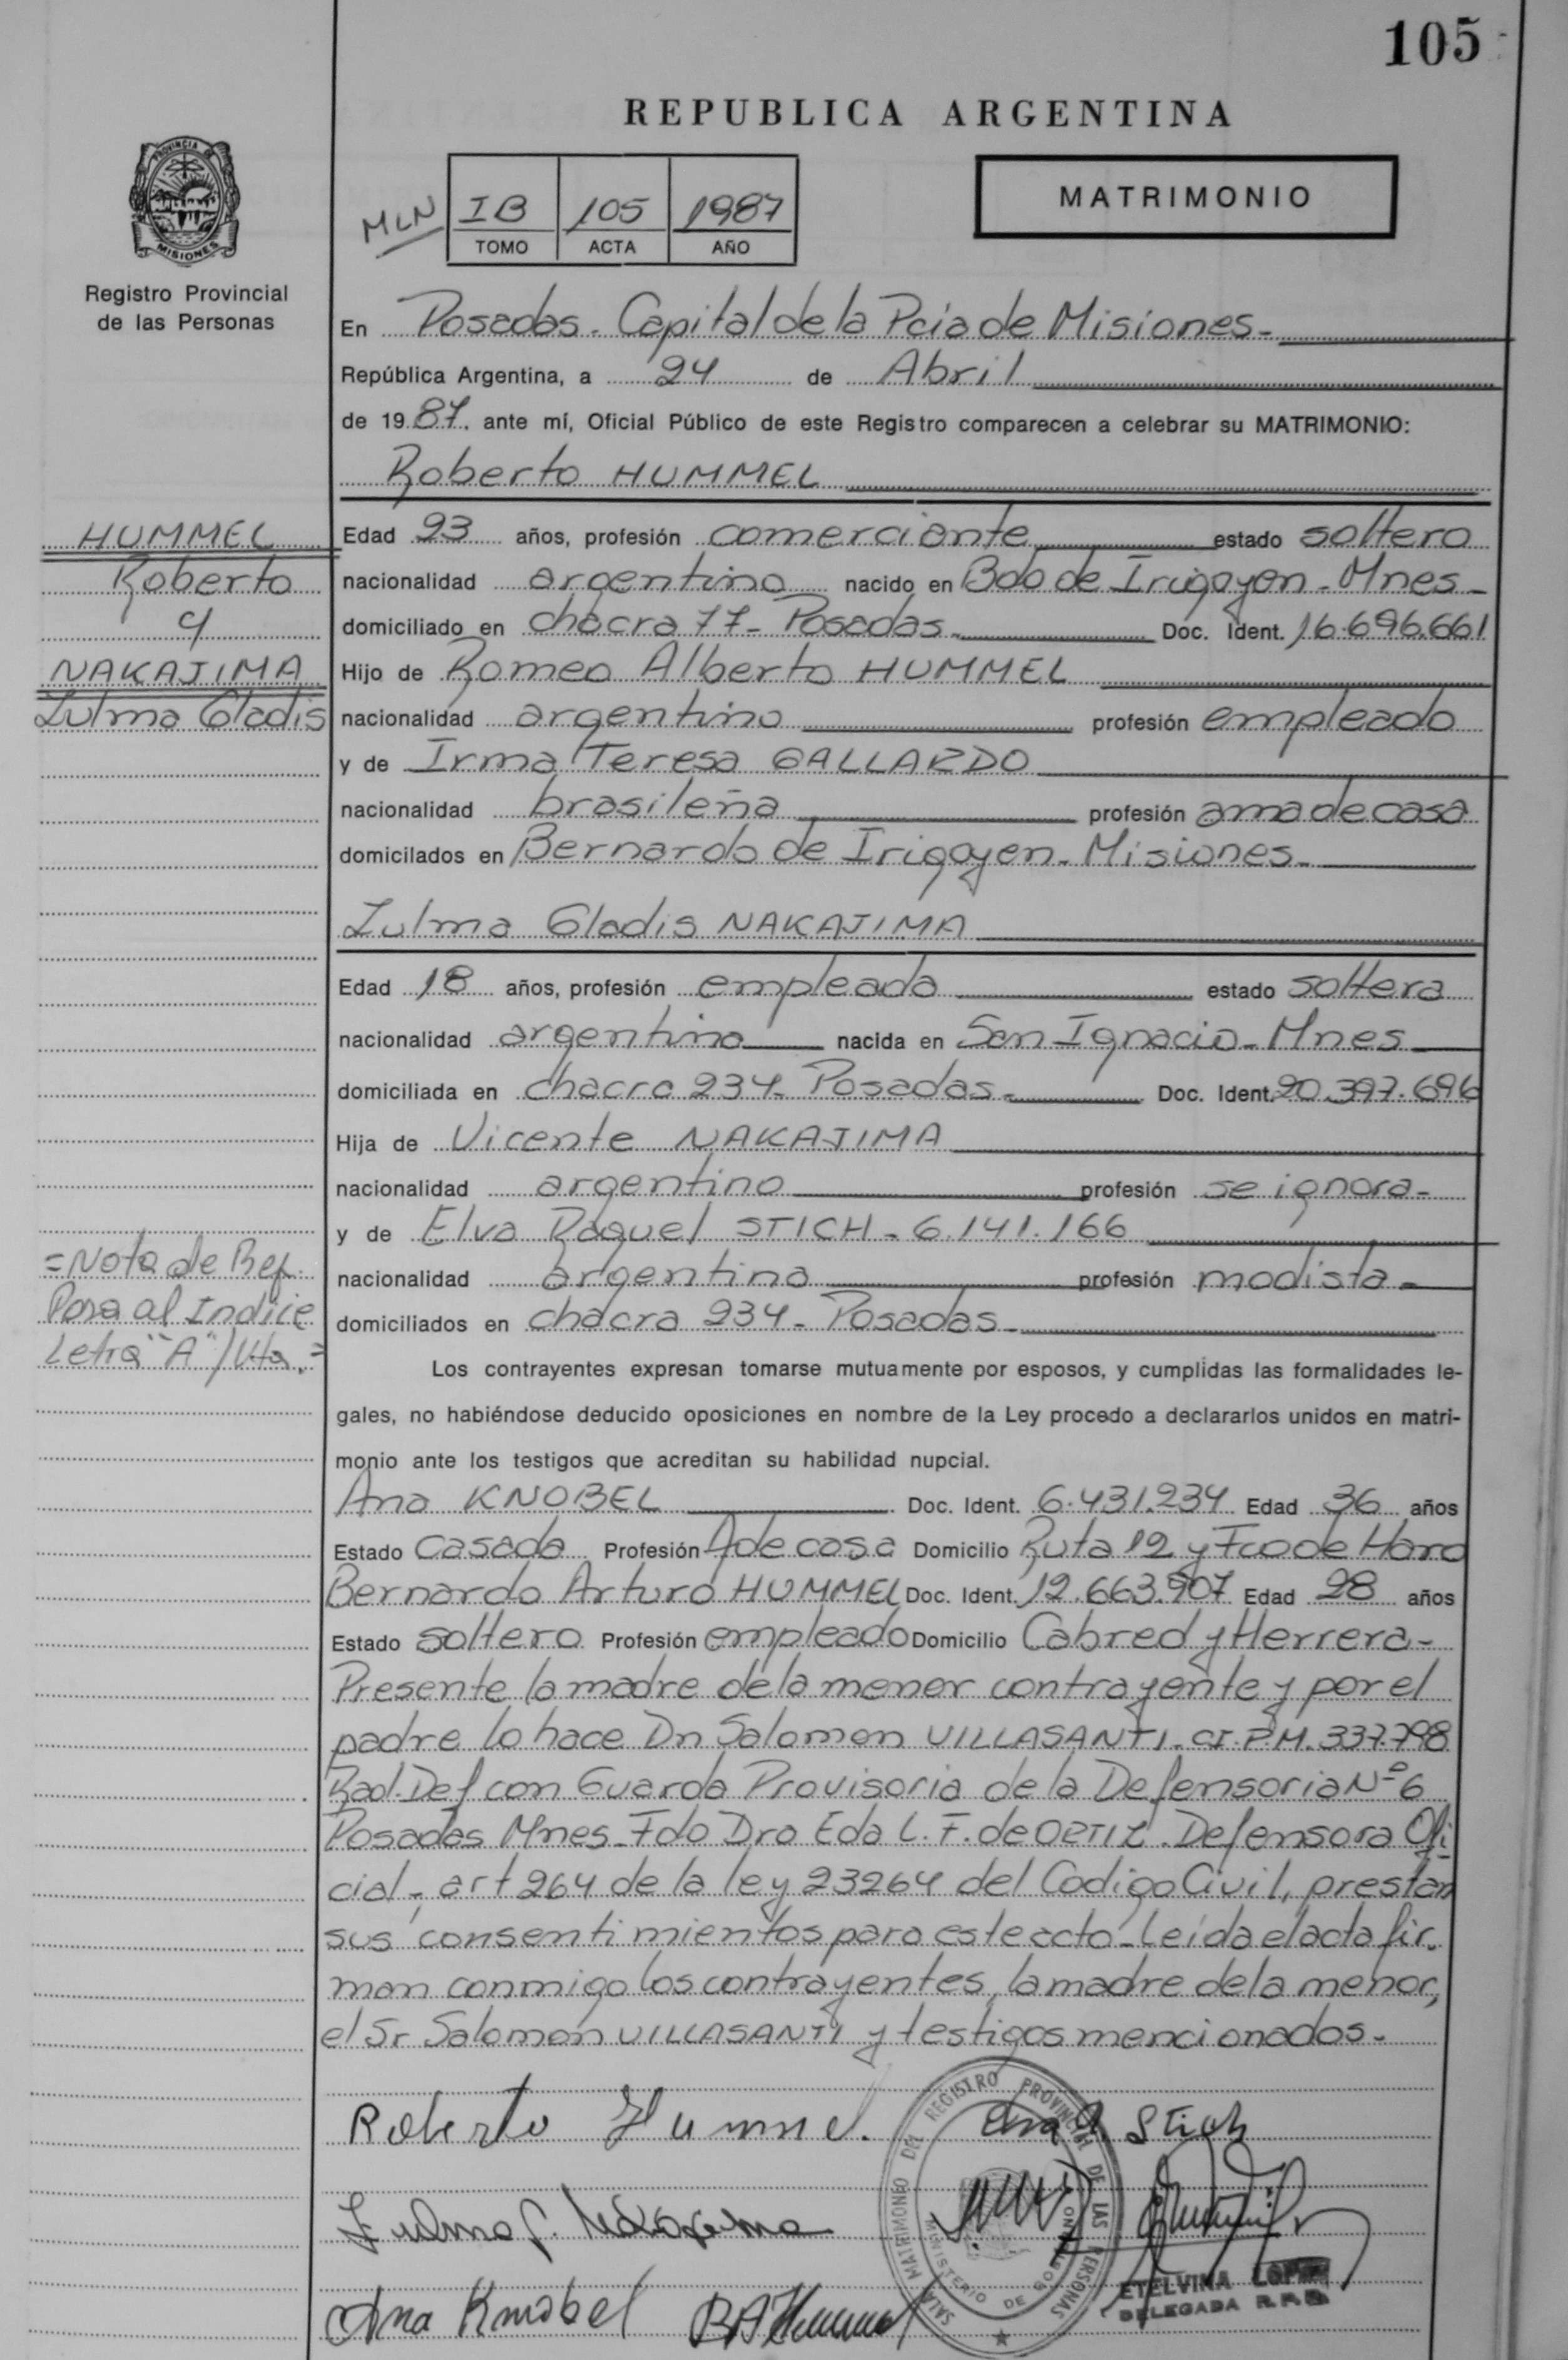 105
REPUBLICA ARGENTINA
PROVINCIA DE
MISIONES
Registro Provincial
de las Personas
MLN
IB 105 1987
TOMO ACTA AÑO
MATRIMONIO
En Posadas - Capital de la Pcia de Misiones -
República Argentina, a 24 de Abril
de 1987. ante mí, Oficial Público de este Registro comparecen a celebrar su MATRIMONIO:
Roberto HUMMEL
HUMMEL
Roberto
c/
NAKAJIMA
Zulma Gladis
Edad 23 años, profesión comerciante estado soltero
nacionalidad argentino nacido en Bdo de Irigoyen - Mnes -
domiciliado en chacra 77 - Posadas - Doc. Ident. 16.696.661
Hijo de Romeo Alberto HUMMEL
nacionalidad argentino profesión empleado
y de Irma Teresa GALLARDO
nacionalidad brasileña profesión ama de casa
domicilados en Bernardo de Irigoyen - Misiones -
Zulma Gladis NAKAJIMA
Edad 18 años, profesión empleada estado soltera
nacionalidad argentina nacida en San Ignacio - Mnes
domiciliada en chacra 234 - Posadas - Doc. Ident. 20.397.696
Hija de Vicente NAKAJIMA
nacionalidad argentino profesión se ignora -
y de Elva Raquel STICH - 6.141.166
nacionalidad argentina profesión modista -
domiciliados en chacra 234 - Posadas -
= Nota de Ref.
Pasa al Indice
Letra "A" / Vta. =
Los contrayentes expresan tomarse mutuamente por esposos, y cumplidas las formalidades le-
gales, no habiéndose deducido oposiciones en nombre de la Ley procedo a declararlos unidos en matri-
monio ante los testigos que acreditan su habilidad nupcial.
Ana KNOBEL Doc. Ident. 6.431.234 Edad 36 años
Estado Casada Profesión A de casa Domicilio Ruta 12 y Fco de Haro
Bernardo Arturo HUMMEL Doc. Ident. 12.663.907 Edad 28 años
Estado soltero Profesión empleado Domicilio Cabred y Herrera -
Presente la madre de la menor contrayente y por el
padre lo hace Dn Salomon VILLASANTI - CI. P.M. 337.798
Rad. Def con Guarda Provisoria de la Defensoria Nº 6
Posadas Mnes - Fdo Dra Eda L. F. de ORTIZ. Defensora Ofi-
cial - art 264 de la ley 23264 del Codigo Civil, prestan
sus consentimientos para este acto - Leída el acta fir-
man conmigo los contrayentes, la madre de la menor,
el Sr Salomon VILLASANTI y testigos mencionados -
Roberto Hummel. Elva R Stich
Zulma G. Nakajima
Ana Knobel BAHummel
SALA MATRIMONEO DEL REGISTRO PROVINCIAL DE LAS PERSONAS
MINISTERIO DE GOBIERNO
ETELVINA LOPEZ
DELEGADA R.P.P.